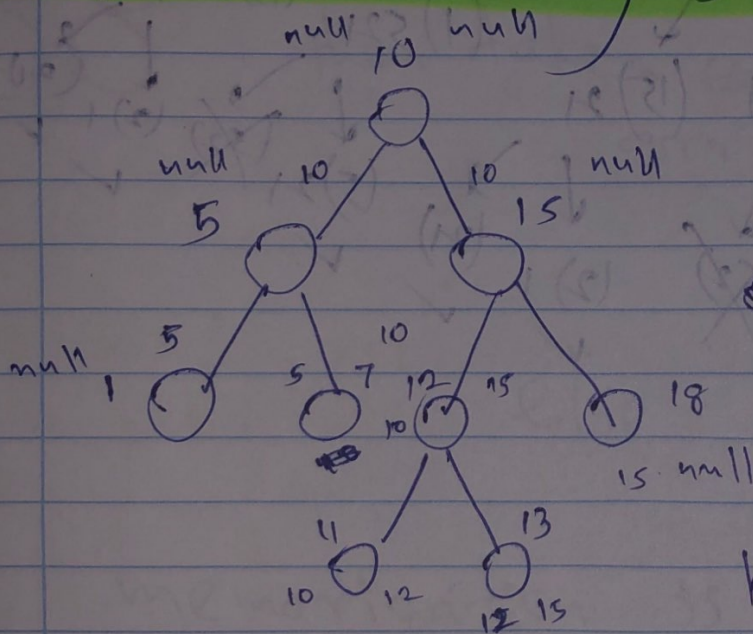 null null
10
null 10 10 null
5 15
5 10
null 1 5 7 12 15 18
10
15 null
11 13
10 12 12 15